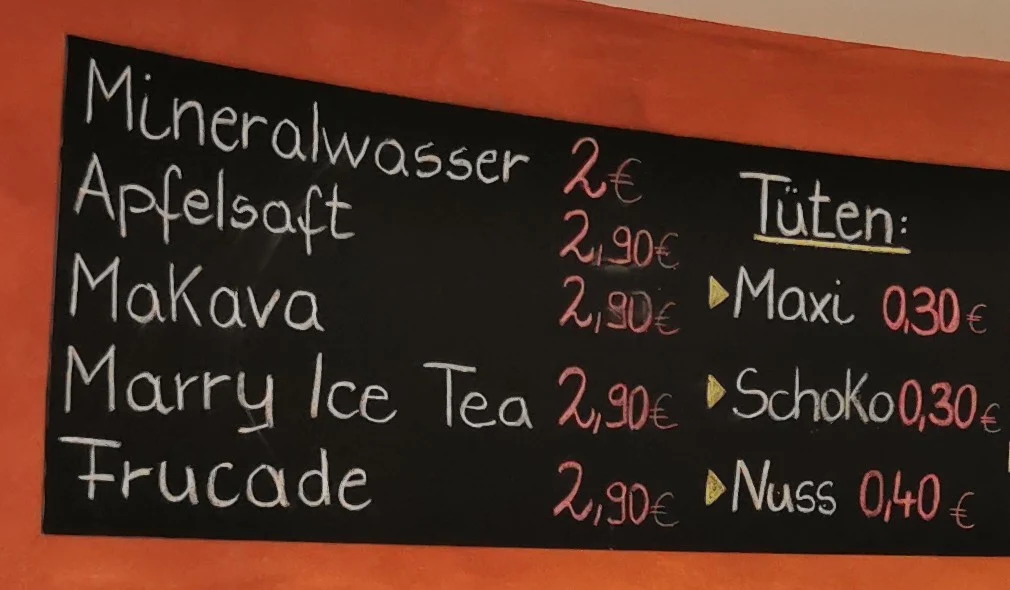 Mineralwasser 2€
Apfelsaft 2,90€
MaKava 2,90€
Marry Ice Tea 2,90€
Frucade 2,90€
Tüten:
Maxi 0,30€
Schoko 0,30€
Nuss 0,40€